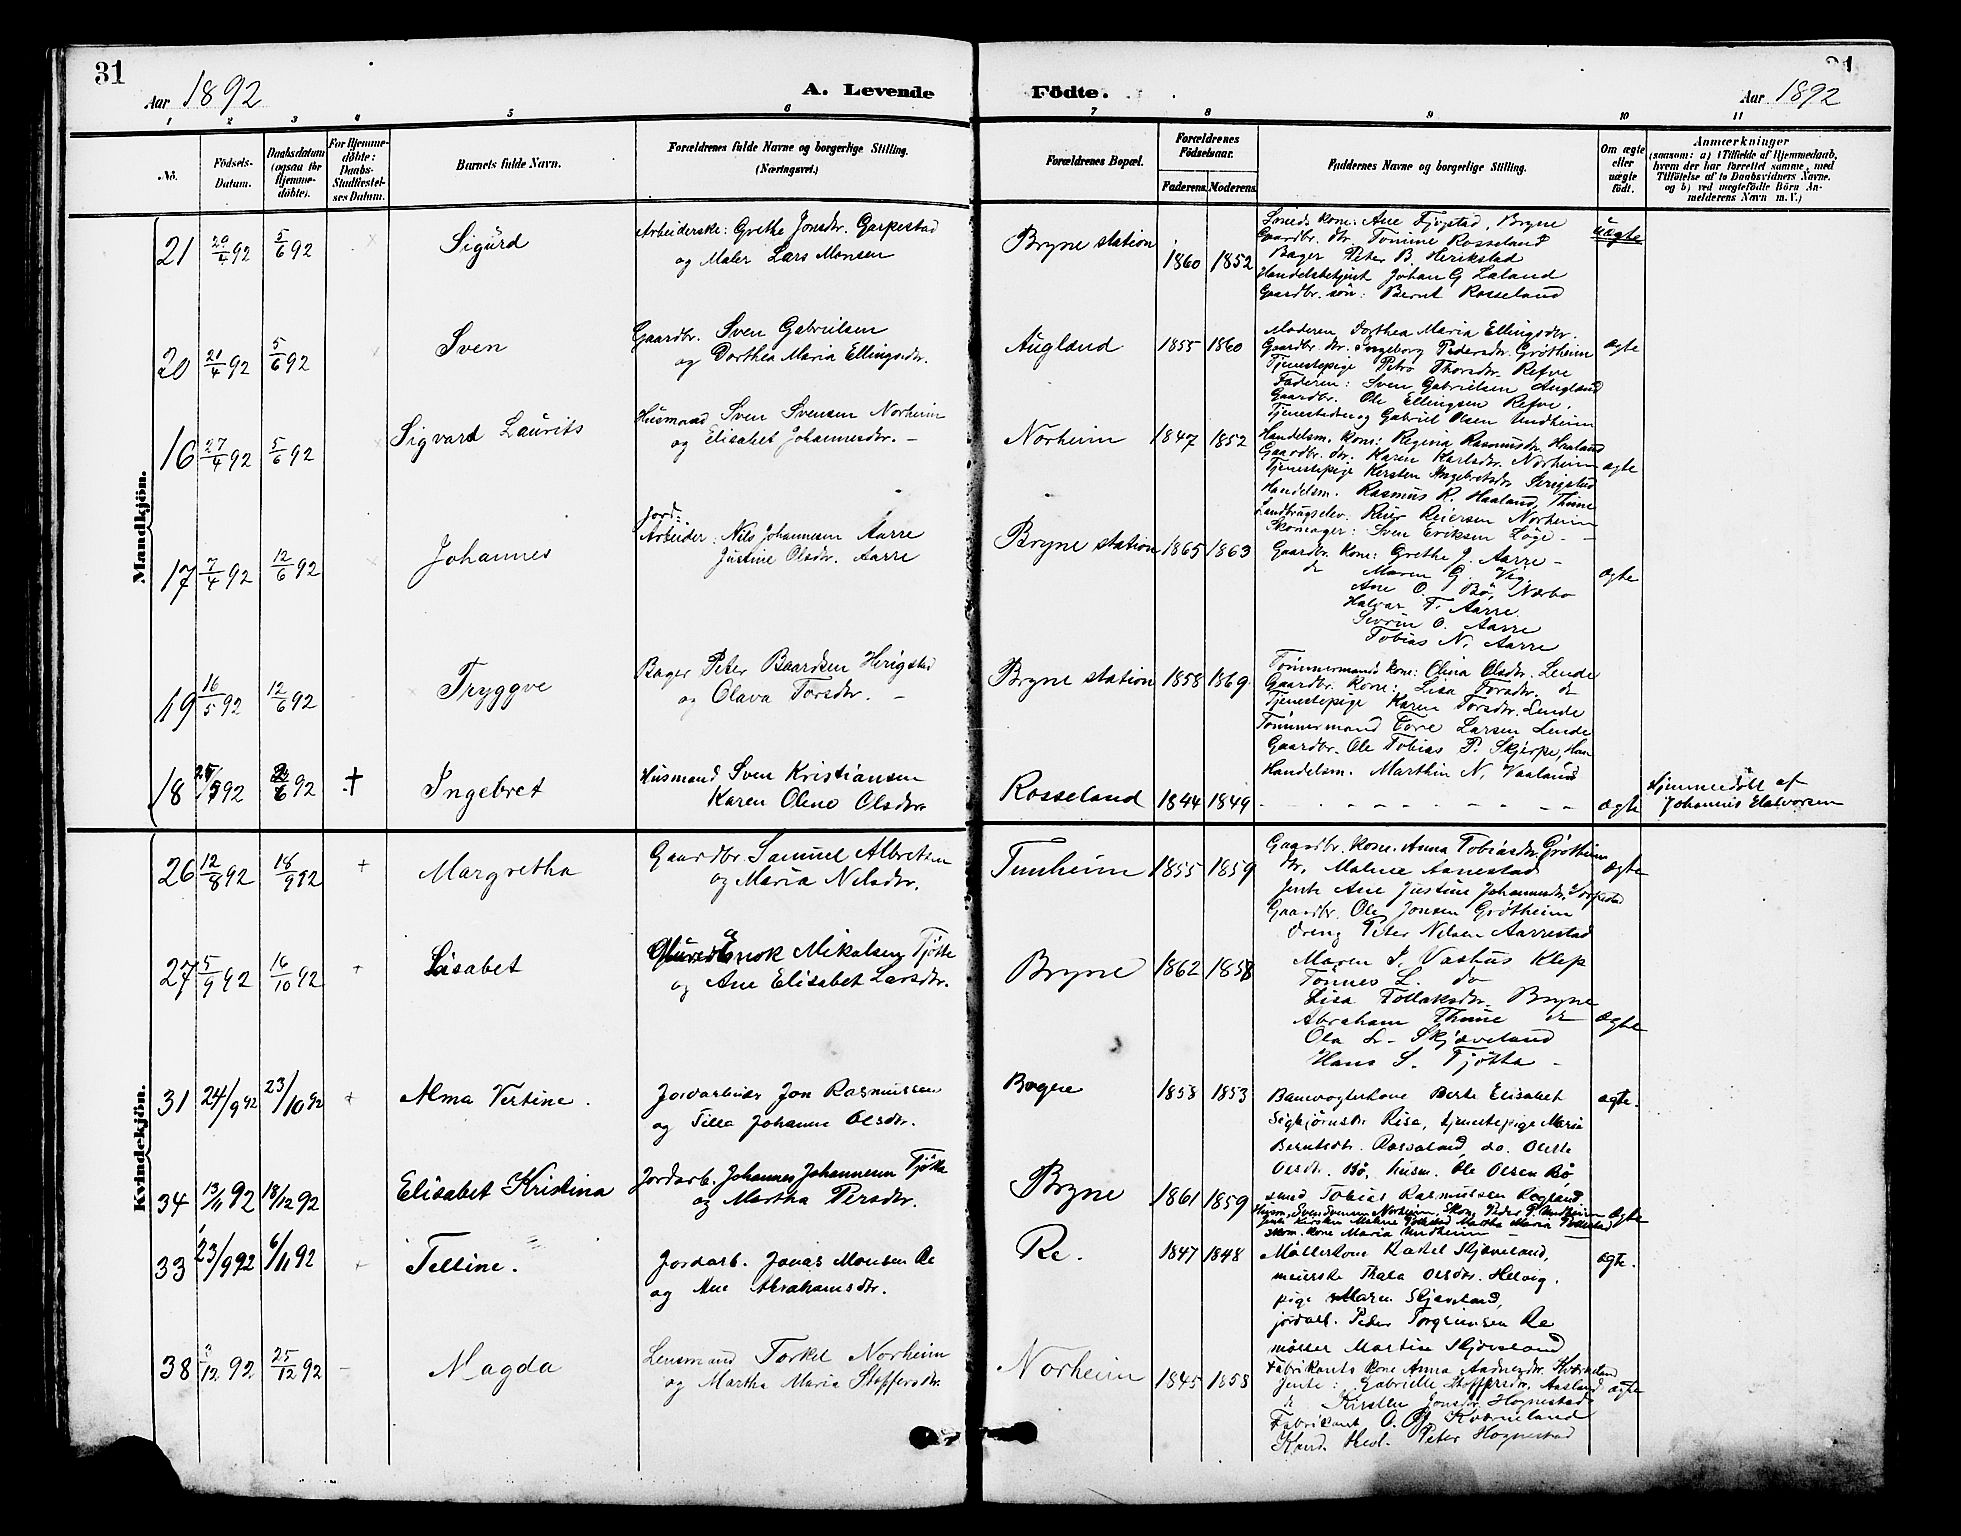 31
Aar 1892
A. Levende
Födte.
Aar 1892
1 2 3 4 5 6 7 8 9 10 11
No.
Födsels-Datum.
Daabsdatum (ogsaa for Hjemmedöbte).
For Hjemmedöbte: Daabs-Stadfæstelses Datum.
Barnets fulde Navn.
Forældrenes fulde Navne og borgerlige Stilling.
(Næringsvei.)
Forældrenes Bopæl.
Forældrenes Födselsaar.
Faderens. Moderens.
Faddernes Navne og borgerlige Stilling.
Om ægte eller uægte födt.
Anmærkninger
(saasom: a) i Tilfælde af Hjemmedaab,
hvem der har forrettet samme, med
Tilföielse af to Daabsvidners Navne,
og b) ved uægtefödte Börn An-
melderens Navn m. V.)
Mandkjön.
21 20/4 92 5/6 92 Sigurd
Arbeiderske: Grethe Jonsdr. Garpestad
og Maler Lars Monsen
Bryne station 1860 1852
Smeds kone: Ane Fjogstad, Bryne
Gaardbr. dtr. Tomine Rosseland
Bager Peter B. Herikstad
Handelsbetjent Johan G Laland
Gaardbr. søn: Bernt Rosseland
uægte
20 21/4 92 5/6 92 Sven
Gaardbr. Sven Gabrielsen
og Dorthea Maria Ellingsdr.
Augland 1855 1860
Moderen Dorthea Maria Ellingsdr.
Gaardbr. dtr. Ingeborg Pedersdr. Grötheim
Tjenestepige Petra Thorsdr. Refve
Faderen: Sven Gabrielsen Augland
Gaardbr. Ole Ellingsen Refve.
Tjenestedreng Gabriel Olsen Undheim
ægte
16 27/4 92 5/6 92 Sigvard Laurits
Husmand Sven Svensen Norheim
og Elisabet Johannesdr. –
Norheim 1847 1852
Handelsm. kone: Regina Rasmusdr. Haaland
Gaardbr. dtr. Karen Karlsdr. Norheim
Tjenestepige Kirsten Ingebretsdr
Handelsm. Rasmus R. Haaland, Thime
Landbrugselev. Reier Reiersen Norheim
Skomager: Sven Eriksen Løge –
ægte
17 7/4 92 12/6 92 Johannes
Jord.
Arbeider: Nils Johannesen Aarre
Justine Olsdr. Aarre
Bryne station 1865 1863
Gaardbr. kone: Grethe J. Aarre –
Maren G.
Ane O. Bö, Nærbo
Halvar T. Aarre
Sivrin O. Aarre
Tobias N. Aarre
ægte
19 16/5 92 12/6 92 Tryggve
Bager Peter Baardsen Herigstad
og Olava Torsdr. –
Bryne station 1858 1869
Tömmermands kone: Olina Olsdr. Lende
Gaardbr. kone: Lisa Torsdr. do
Tjenestepige Karen Torsdr. Lende
Tömmermand Tore Larsen Lende
Gaardbr. Ole Tobias P. Skjerpe, Haa
Handelsm. Marthin N. Vaaland
18 25/5 92 /6 92 + Ingebret
Husmand Sven Kristiansen
Karen Oline Olsdr.
Rosseland 1844 1849
ægte
Hjemmedöbt af
Johannes Halvorsen
Kvindekjön.
26 12/8 92 18/9 92 + Margretha
Gaardbr. Samuel Albretsen
og Maria Nilsdr.
Tunheim 1855 1859
Gaardbr. kone. Anna Tobiasdr. Grötheim
dtr. Malene Aanestad
Jente Ane Justine Johannesdr.
Gaardbr. Ole Jonsen Grötheim
Dreng Peter Nilsen Aarrestad
ægte
27 5/9 92 16/10 92 + Lisabet
Mikalsen Tjötta
og Ane Elisabet Larsdr.
Bryne 1862 1858
Maren J. Vashus Klep
Tönnes L. do
Lisa Tollaksdr. Bryne
Abraham Thime
Ola L. Skjæveland
Hans S. Tjötta –
ægte
31 24/9 92 23/10 92 + Alma Vertine.
Jordarbeider Jon Rasmussen
og Tilla Johanne Olsdr.
Bryne 1853 1853
Banevogterkone Berte Elisabet
Sigbjörnsdr Risa, tjenestepige Maria
Berntsdtr. Rosseland, do. Oleste
Olsdtr. Bö, husm. Ole Olsen Bö,
smed Tobias Rasmussen Rogland
ægte.
34 13/11 92 18/12 92 Elisabet Kristina
Jordarb. Johannes Johannesen Tjötta
og Martha Persdtr.
Bryne 1861 1859
Husm. Sven Svensen Norheim, Skom. Peder P. Undheim
Jente Kirsten Malene Martha Maria
Skom. kone Maria Undheim
ægte
33 23/9 92 6/11 92 Telline.
Jordarb. Jonas Monsen Re
og Ane Abrahamsdtr.
Re. 1847 1848
Möllerkone Rakel Skjæveland,
meierske Thala Olsdtr. Helvig.
pige Maren Skjæveland,
jordarb. Peder Torgersen Re
möller Martin Skjæveland
ægte.
38 /12 92 25/12 92 – Magda
Lensmand Torkel Norheim
og Martha Maria Stoffersdtr.
Norheim 1845 1858
Fabrikants kone Anna Aadnesdtr. Kværneland
Jente: Gabrielle Stoffersdr. Aasland
Kirsten Jonsdtr. Hognestad
Fabrikant O. G. Kværneland
Kand. theol. Peter Hognestad
ægte